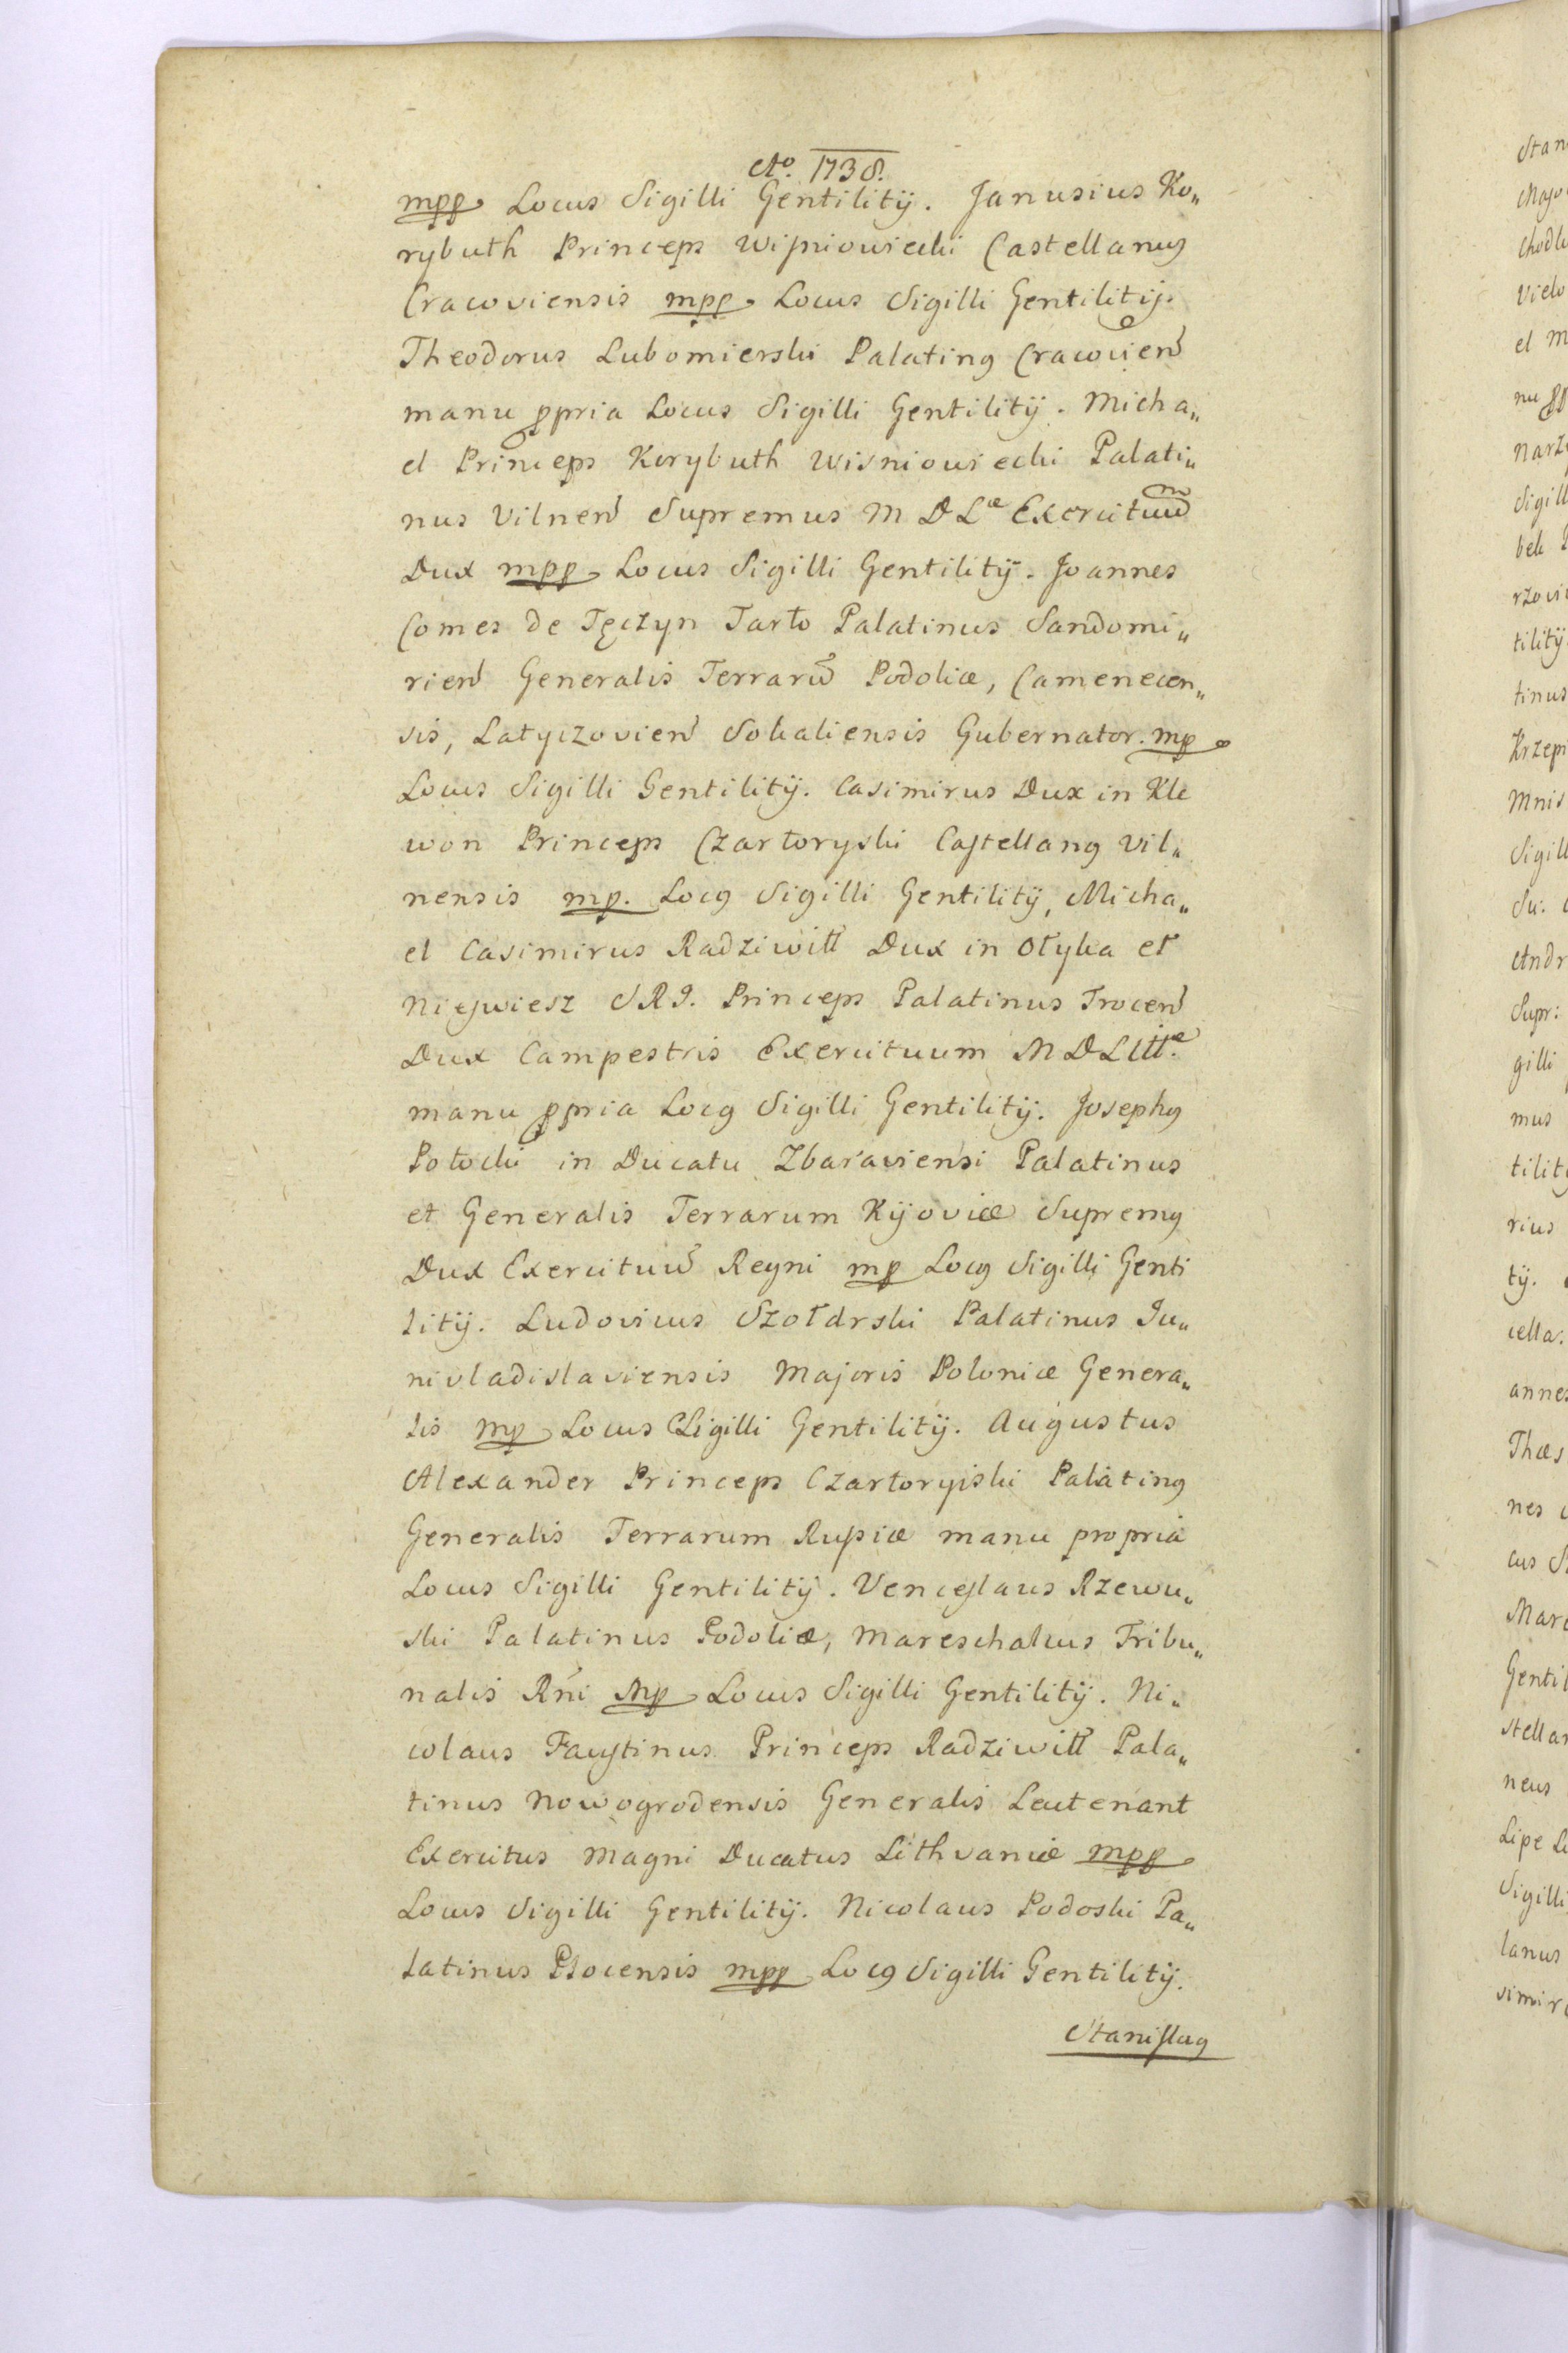 Ao. 1738.
mpp Locus Sigilli Gentilitÿ. Janusius Ko„
rybuth Princeps Wiſniowiecki Castellanꝰ
Cracoviensis mpp Locus Sigilli Gentilitÿ.
Theodorus Lubomierski Palatinꝰ Cracovień
manu ꝓpria Locus Sigilli Gentilitÿ. Micha„
el Princeps Korybuth Wisniowiecki Palati„
nus Vilneń Supremus M D Læ Exercituum̃
Dux mpp Locus Sigilli Gentilitÿ. Joannes
Comes de Tęczyn Tarło Palatinus Sandomi„
rień Generalis Terrarũ Podoliæ, Camenecen„
sis, Latyczovień Sokaliensis Gubernator. mp
Locus Sigilli Gentilitÿ. Casimirus Dux in Kle
won Princeps Czartoryski Caſtellanꝰ Vil„
nensis mp. Locꝰ Sigilli Gentilitÿ, Micha„
el Casimirus Radziwiłł Dux in Ołyka et
Nieſwiesz S R I. Princeps Palatinus Troceń
Dux Campestris Exercituum M D Littæ.
manu ꝓpria Locꝰ Sigilli Gentilitÿ. Josephꝰ
Potocki in Ducatu Zbaraviensi Palatinus
et Generalis Terrarum Kijoviæ Supremꝰ
Dux Exercituũ Regni mp Locꝰ Sigilli Genti
litÿ. Ludovicus Szołdrski Palatinus Ju„
nivladislaviensis Majoris Poloniæ Genera„
lis mp Locus Sigilli Gentilitÿ. Augustus
Alexander Princeps Czartoryiski Palatinꝰ
Generalis Terrarum Ruſsiæ manu propria
Locus Sigilli Gentilitÿ. Venceſlaus Rzewu„
ski Palatinus Podoliæ, Mareschalcus Tribu„
nalis Rńi Mp Locus Sigilli Gentilitÿ. Ni„
colaus Fauſtinus Princeps Radziwiłł Pala„
tinus Nowogrodensis Generalis Leutenant
Exercitus Magni Ducatus Lithvaniæ mpp
Locus Sigilli Gentilitÿ. Nicolaus Podoski Pa„
latinus Plocensis mpp Locꝰ Sigilli Gentilitÿ.
Staniſlaꝰ